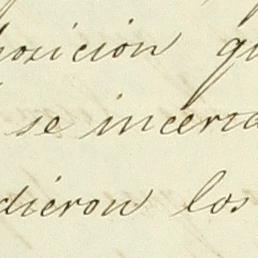 posicion qu
se incerta
dieron los